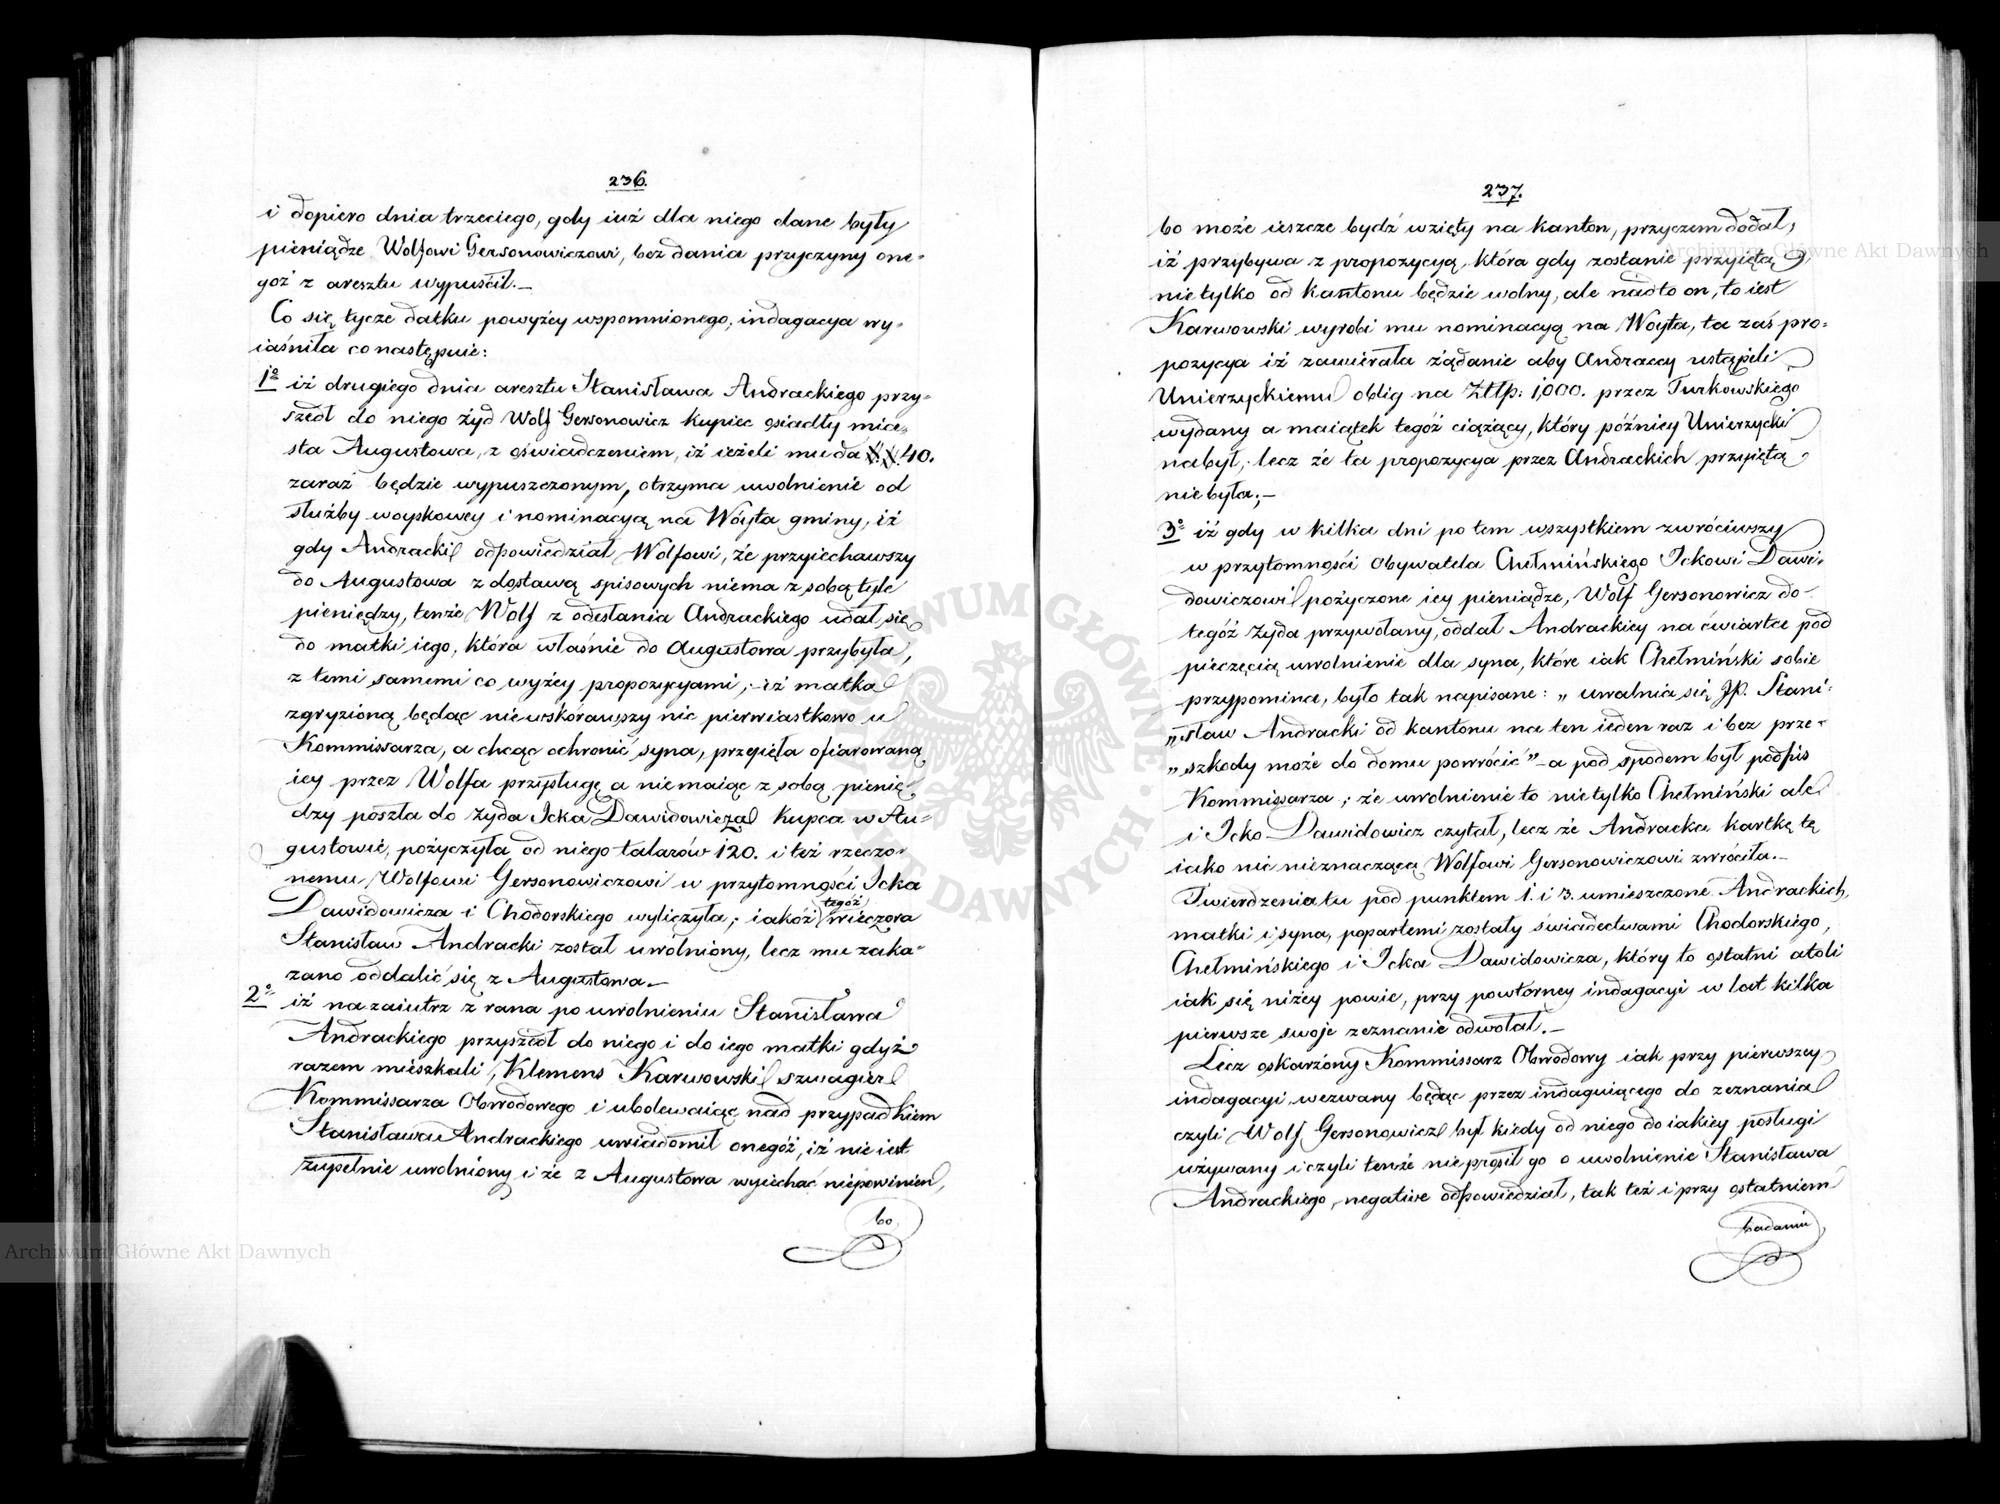 236.
i dopiero dnia trzeciego, gdy iuż dla niego dane były
pieniądze Wolfowi Gersonowiczowi, bez dania przyczyny one-
goż z aresztu wypuścił.—
Co się tycze datku powyżey wspomnionego, indagacya wy-
iaśniła co następuie:
1º iż drugiego dnia aresztu Stanisława Andrackiego przy-
szedł do niego żyd Wolf Gersonowicz kupiec osiadły mia-
sta Augustowa, z oświadczeniem, iż ieżeli mu da 40.
zaraz będzie wypuszczonym, otrzyma uwolnienie od
służby woyskowey i nominacyą na Wóyta gminy, iż
gdy Andracki odpowiedział Wolfowi, że przyiechawszy
do Augustowa z dostawą spisowych niema z sobą tyle
pieniędzy, tenże Wolf z odesłania Andrackiego udał się
do matki iego, która właśnie do Augustowa przybyła,
z temi samemi co wyżey propozycyami;- iż matka
zgryzioną będąc niewskórawszy nic pierwiastkowo u
Kommissarza, a chcąc ochronić syna, przyięła ofiarowaną
iey przez Wolfa przysługę a niemaiąc z sobą pienię-
dzy poszła do żyda Icka Dawidowicza kupca w Au-
gustowie, pożyczyła od niego talarów 120. i też rzeczo-
nemu Wolfowi Gersonowiczowi w przytomności Icka
Dawidowicza i Chodorskiego wyliczyła; iakóż tegóż wieczora
Stanisław Andracki został uwolniony, lecz mu zaka-
zano oddalić się z Augustowa.—
2º iż nazaiutrz z rana po uwolnieniu Stanisława
Andrackiego przyszedł do niego i do iego matki gdyż
razem mieszkali, Klemens Karwowski szwagier
Kommissarza Obwodowego i ubolewaiąc nad przypadkiem
Stanisława Andrackiego uwiadomił onegóż, iż nie iest
zupełnie uwolniony i że z Augustowa wyiechać niepowinien,
bo
237.
bo może ieszcze bydź wzięty na kanton, przyczem dodał,
iż przybywa z propozycyą, która gdy zostanie przyiętą,
nietylko od kantonu będzie wolny, ale nadto on, to iest
Karwowski wyrobi mu nominacyą na Wóyta, ta zaś pro-
pozycya iż zawierała żądanie aby Andraccy ustąpili
Unierzyckiemu oblig na Złtp: 1,000. przez Turkowskiego
wydany a maiątek tegóż ciążący, który późniey Unierzycki
nabył; lecz że ta propozycya przez Andrackich przyiętą
niebyła;—
3º iż gdy w kilka dni po tem wszystkiem zwróciwszy
w przytomności Obywatela Chełmińskiego Ickowi Dawi-
dowiczowi pożyczone iey pieniądze, Wolf Gersonowicz do
tegóż Żyda przywołany, oddał Andrackiey na ćwiartce pod
pieczęcią uwolnienie dla syna, które iak Chełmiński sobie
przypomina, było tak napisane: „uwalnia się JP. Stani-
„sław Andracki od kantonu na ten ieden raz i bez prze-
„szkody może do domu powrócić” - a pod spodem był podpis
Kommissarza; że uwolnienie to nietylko Chełmiński ale
i Icko Dawidowicz czytał, lecz że Andracka kartkę tę
iako nic nieznaczącą Wolfowi Gersonowiczowi zwróciła.—
Twierdzenia tu pod punktem 1. i 3. umieszczone Andrackich,
matki i syna, popartemi zostały świadectwami Chodorskiego,
Chełmińskiego i Icka Dawidowicza, który to ostatni atoli
iak się niżey powie, przy powtórney indagacyi w lat kilka
pierwsze swoje zeznanie odwołał.—
Lecz oskarżony Kommissarz Obwodowy iak przy pierwszey
indagacyi, wezwany będąc przez indaguiącego do zeznania
czyli Wolf Gersonowicz był kiedy od niego do iakiey posługi
używany i czyli tenże nieprosił go o uwolnienie Stanisława
Andrackiego, negative odpowiedział, tak też i przy ostatniem
badaniu
Archiwum Główne Akt Dawnych
Archiwum Główne Akt Dawnych
ARCHIWUM GŁÓWNE AKT DAWNYCH